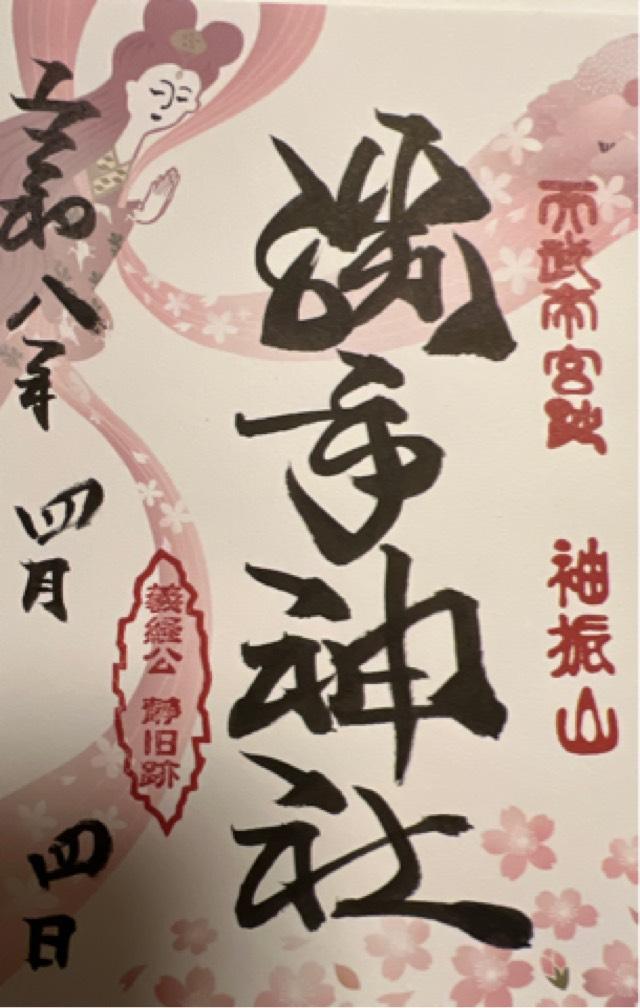 天武帝宮跡 袖振山
勝手神社
義経公 静旧跡
令和八年 四月 四日